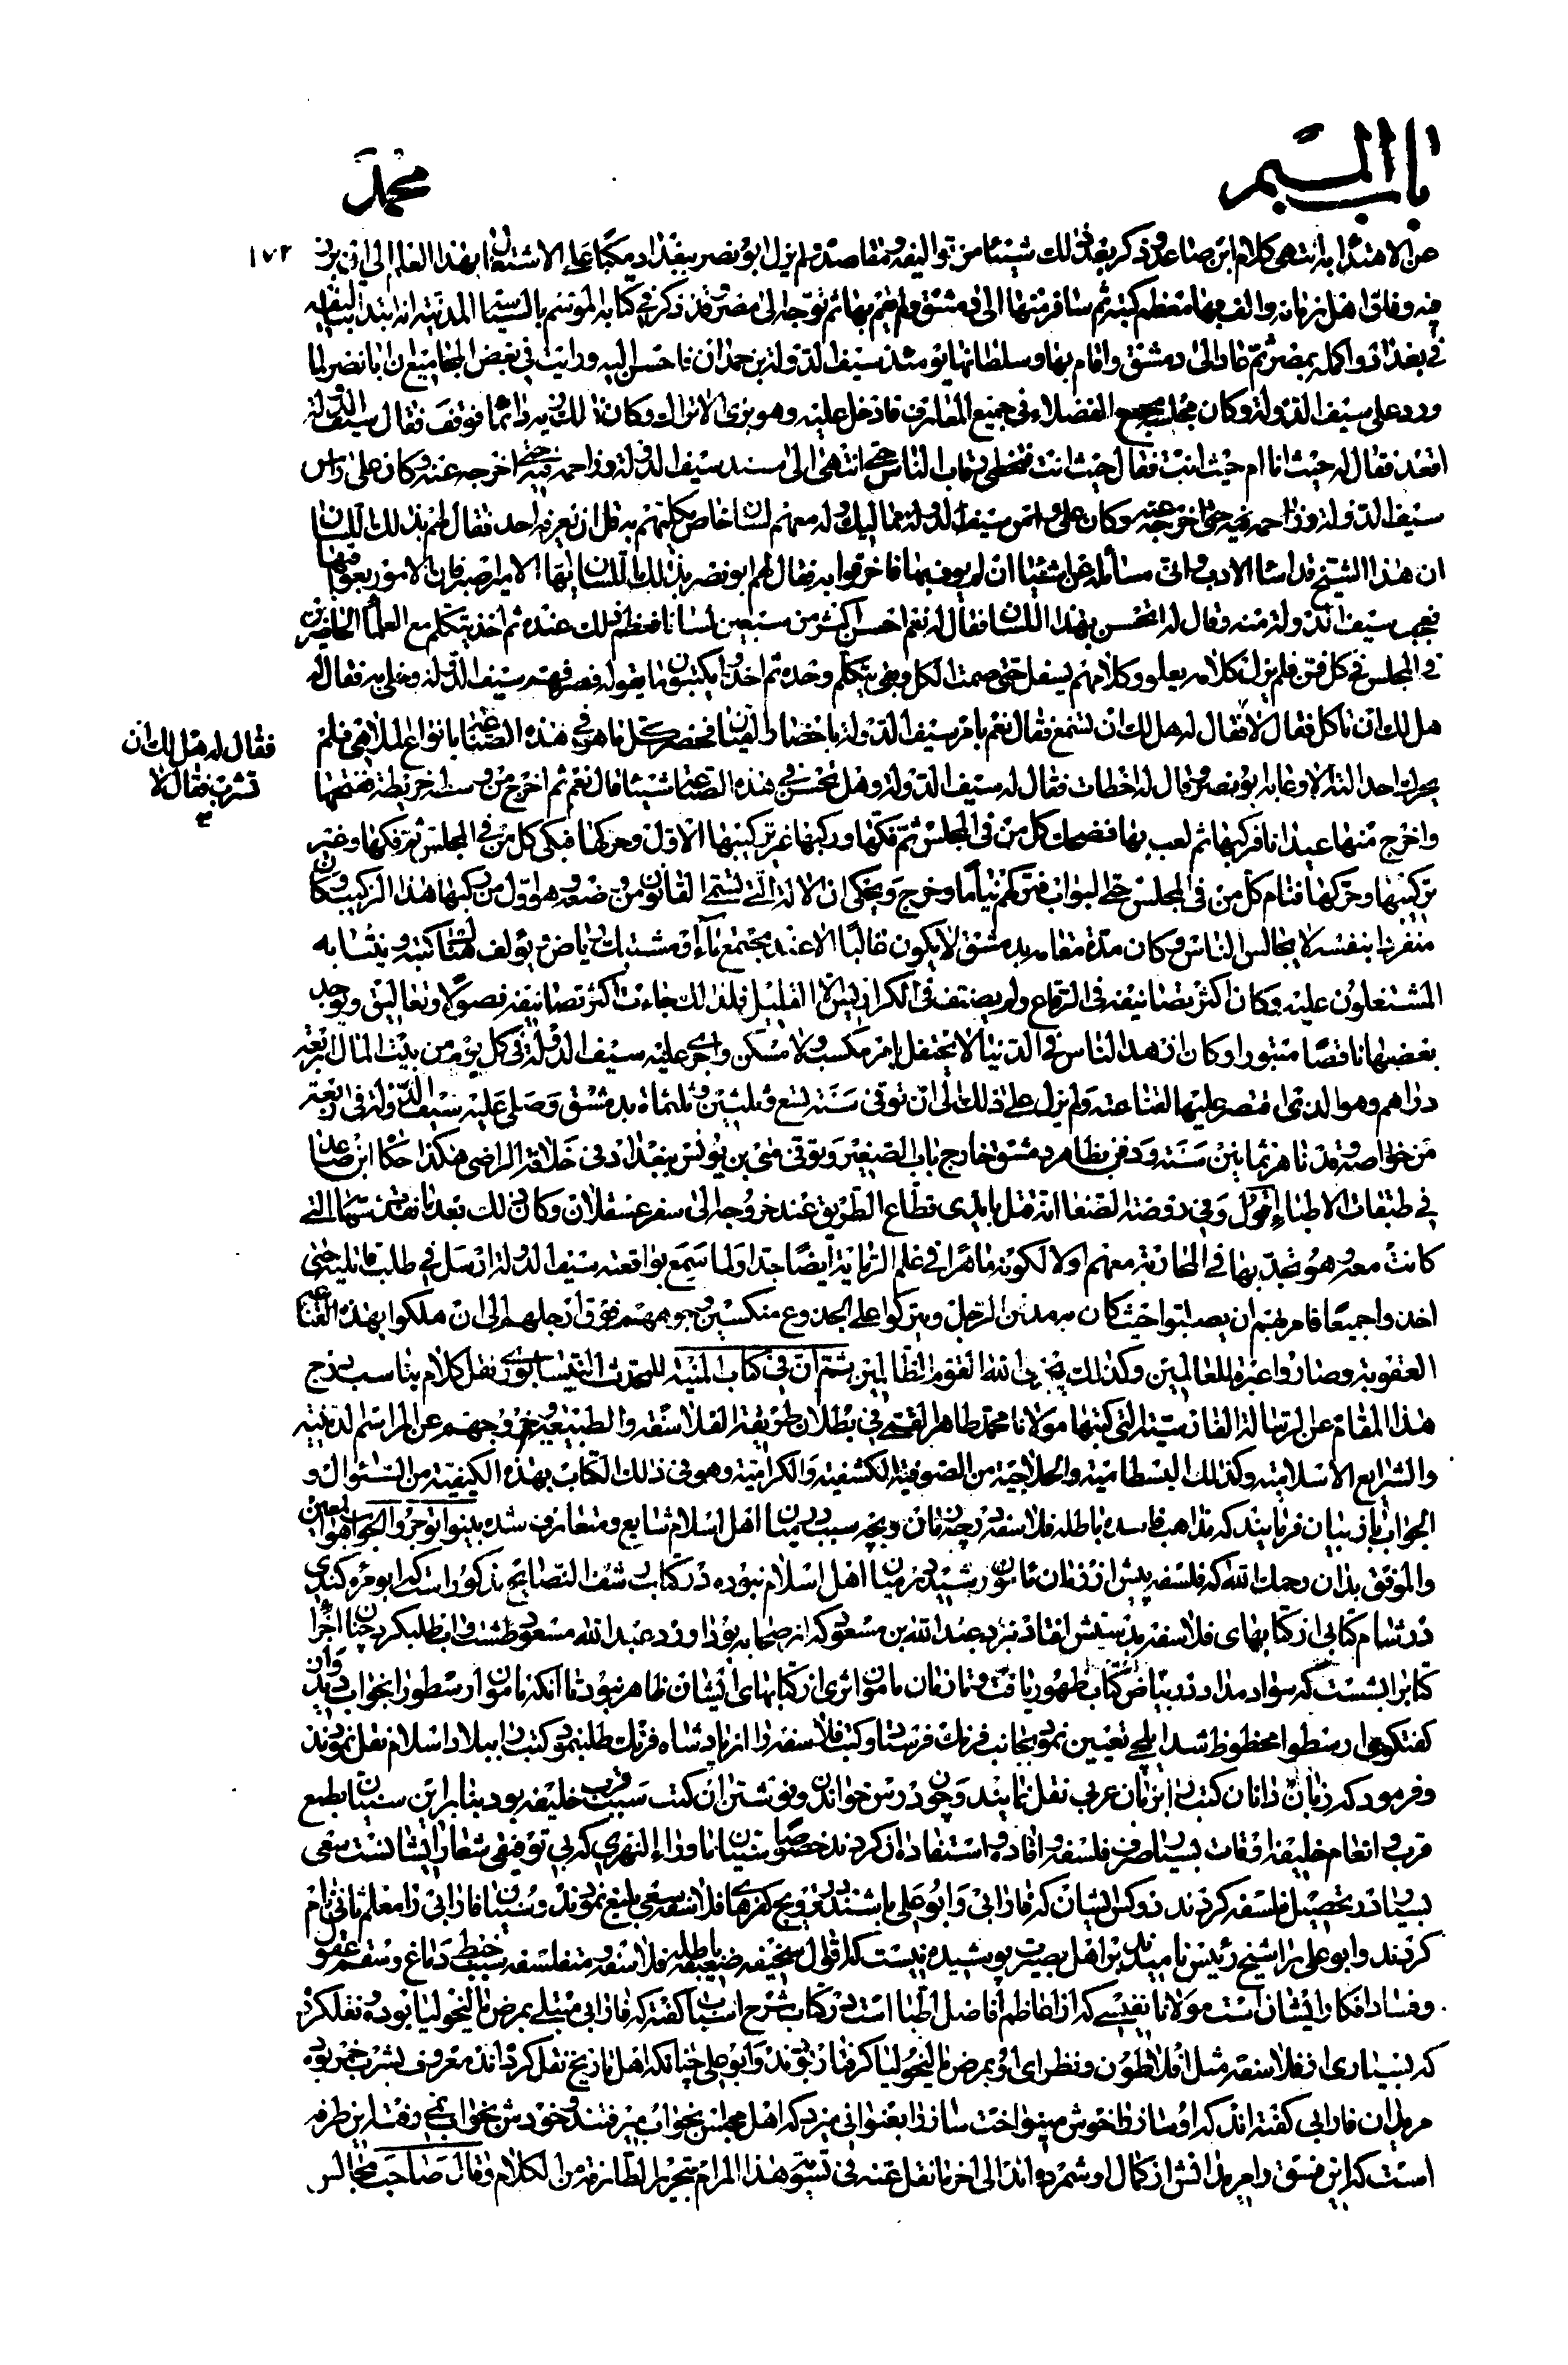 باب الميم
محمد
١٧٣
عن الاهتداء به انتهى كلام ابن صاعد وذكر بعد ذلك شيئا من تواليفه ومقاصده ولم يزل ابو نصر ببغداد مكبا على الاشتغال بهذا العلم الى ان برز
فيه وفاق اهل زمانه والف بها معظم كتبه ثم سافر منها الى دمشق ولم يقم بها ثم توجه الى مصر وقد ذكر في كتابه الموسوم بالسياسة المدنية انه ابتدأ بتأليفه
في بغداد واكمله بمصر ثم عاد الى دمشق واقام بها وسلطانها يومئذ سيف الدولة بن حمدان فاحسن اليه ورايت في بعض المجاميع ان ابا نصر لما
ورد على سيف الدولة وكان مجلسه مجمع الفضلاء في جميع المعارف فادخل عليه وهو بزى الاتراك وكان ذلك زيه دائما فوقف فقال سيف الدولة
اقعد فقال له حيث انا ام حيث انت فقال حيث انت فتخطى رقاب الناس حتى انتهى الى مسند سيف الدولة وزاحمه فيه حتى اخرجه عنه وكان على راس
سيف الدولة وزاحمه فيه حتى اخرجه عنه وكان على راس سيف الدولة مماليك وله معهم لسان خاص يكلمهم به قل ان يعرفه احد فقال لهم بذلك اللسان
ان هذا الشيخ قد اساء الادب وانى مسائله عن اشياء ان لم يوف بها فاخرقوا به فقال لهم ابو نصر بذلك اللسان ايها الامير اصبر فان الامور بعواقبها
فعجب سيف الدولة منه وقال له اتحسن بهذا اللسان فقال له نعم احسن اكثر من سبعين لسانا فعظم ذلك عنده ثم اخذ يتكلم مع العلماء الحاضرين
في المجلس في كل فن فلم يزل كلامه يعلو وكلامهم يسفل حتى صمت الكل وبقى يتكلم وحده ثم اخذوا يكتبون ما يقوله فصرفهم سيف الدولة وخلى به فقال له
هل لك ان تاكل فقال لا فقال له هل لك ان تسمع فقال نعم بامر سيف الدولة باحضار القينات فحضر كل ما هر في هذه الصناعة بانواع الملاهى فلم
فقال له هل لك ان
تشرب فقال لا
يحرك احد الته الا وعابه ابو نصر وقال له اخطات فقال له سيف الدولة وهل تحسن في هذه الصناعة شيئا قال نعم ثم اخرج من وسطه خريطة ففتحها
واخرج منها عيدانا فركبها ثم لعب بها فضحك كل من في المجلس ثم فكها وركبها غير تركيبها الاول وحركها فبكى كل من في المجلس ثم فكها وغير
تركيبها وحركها فنام كل من في المجلس حتى البواب فتركهم نياما وخرج ويحكى ان الالة التي تسمى القانون من وضعه وهو اول من ركبها هذا التركيب وكان
منفردا بنفسه لا يجالس الناس وكان مدة مقامه بدمشق لا يكون غالبا الا عند مجتمع ماء او مشتبك رياض ويؤلف هناك كتبه وينتابه
المشتغلون عليه وكان اكثر تصانيفه في الرقاع ولم يصنف في الكراريس الا القليل فلذلك جاءت اكثر تصانيفه فصولا وتعاليق ويوجد
بعضها ناقصا منثورا وكان ازهد الناس في الدنيا لا يحتفل بامر مكسب ولا مسكن واجرى عليه سيف الدولة في كل يوم من بيت المال اربعة
دراهم وهو الذى اقتصر عليها لقناعته ولم يزل على ذلك الى ان توفى سنة تسع وثلثين وثلثمائة بدمشق وصلى عليه سيف الدولة في اربعة
من خواصه وقد ناهز ثمانين سنة ودفن بظاهر دمشق خارج باب الصغير وتوفى متى بن يونس ببغداد في خلافة الراضى هكذا حكاه ابن صاعد
في طبقات الاطباء اقول وفي روضة الصفا انه قتل بايدى قطاع الطريق عند خروجه الى سفر عسقلان وكان ذلك بعد ما نفد سهامه التي
كانت معه وهو يحدب بها في المحاربة معهم اولا لكونه ماهرا في علم الرماية ايضا جدا ولما سمع بواقعته سيف الدولة ارسل في طلب قاتليه حتى
اخذوا جميعا فامر بهم ان يصلبوا حيث كان به مدفن الرجل ويتركوا على الجذوع منكسين وجوههم فوق ارجلهم الى ان هلكوا بهذه
العقوبة وصاروا عبرة للعالمين وكذلك يجزى الله القوم الظالمين ثم ان في كتاب المنية للمحدث النيسابورى نقل كلام يناسب درج
هذا المقام عن الرسالة الفارسية التى كتبها مولانا محمد طاهر القمى في بطلان طريقة الفلاسفة والطبيعية وخروجهم عن المراسم الدينية
والشرايع الاسلامية وكذلك البسطامية والحلاجية من الصوفية الكشفية والكرامية وهو في ذلك الكتاب بهذه الكيفية من السئوال و
الجواب باز بيان فرمايند كه مذاهب فاسده باطله فلاسفه در چه زمان وبچه سبب در ميان اهل اسلام شايع ومتعارف شده بينوا توجروا الجواب هو المعين
والموفق بدان رحمك الله كه فلسفه پيش از زمان مامون رشيد در ميان اهل اسلام نبوده در كتاب رشف النصايح مذكور است كه ابو مره كندى
در شام كتابى از كتابهاى فلاسفه بدستش افتاد نزد عبد الله بن مسعود كه از صحابه بود اورد عبد الله مسعود طشت واب طلب كرد چنان اجزاء
كتابرا بشست كه سواد مداد در بياض كتاب ظهور يافت وتا زمان مامون اثرى از كتابهاى ايشان ظاهر نبود تا آنكه مامون ارسطو را بخواب ديد واز
گفتگوى ارسطو محظوظ شد ايلچى تعيين نمود بجانب فرنك فرستاد وكتب فلاسفه را از پادشاه فرنك طلب نمود وكتب را ببلاد اسلام نقل نمودند
وفرمود كه زبان دانان كتب را بزبان عربى نقل نمايند وچون درس خواندن ونوشتن ان كتب سبب قرب خليفه بود بنابراين سنيان بطمع
قرب وانعام خليفه اوقات بسيار صرف فلسفه وافاده واستفاده ان كردند خصوصا سنيان ماوراء النهرى كه بى توفيقى شعار ايشانست سعى
بسيار در تحصيل فلسفه كردند دو كس ايشان كه فارابى وابو على باشند در ترويج كفرهاى فلاسفه سعى بليغ نمودند وسنيان فارابى را معلم ثانى نام
كردند وابو على را شيخ رئيس ناميدند بر اهل بصيرت پوشيده نيست كه اقوال سخيفه ضعيفه باطله فلاسفه ومتفلسفه بسبب خبط دماغ وسقم عقول
وفساد افكار ايشان است مولانا نفيسى كه از اعاظم افاضل اطبا است در كتاب شرح اسباب گفته كه فارابى مبتلى بمرض ماليخوليا بوده ونقل كرده
كه بسيارى از فلاسفه مثل افلاطون ونظراى او بمرض ماليخوليا گرفتار بودند وابو على چنانكه اهل تاريخ نقل كرده اند معروف بشرب خمر بوده
مريدان فارابى گفته اند كه او ساز را خوش مينواخت ساز را بعنوانى ميزد كه اهل مجلس بخواب ميرفتند وخودش بخواب نمى رفت اين طرفه
است كه اين فسق را مريدانش از كمال او شمرده اند الى اخر ما نقل عنه في تسويه هذا المرام بتحرير الطارفه من الكلام وقال صاحب مجالس